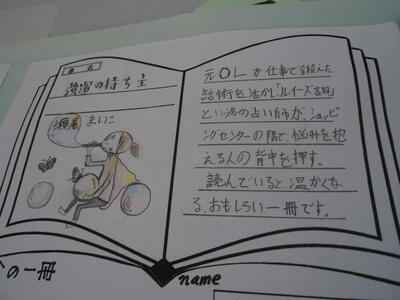 書名
強運の持ち主
瀬尾 まいこ
元OLが仕事で鍛えた
話術を活かし「ルイーズ吉田」
という名の占い師が、ショッピ
ングセンターの隅で、悩みを抱
える人の背中を押す。
読んでいると、温かくな
る、おもしろい一冊です。
の一冊
name